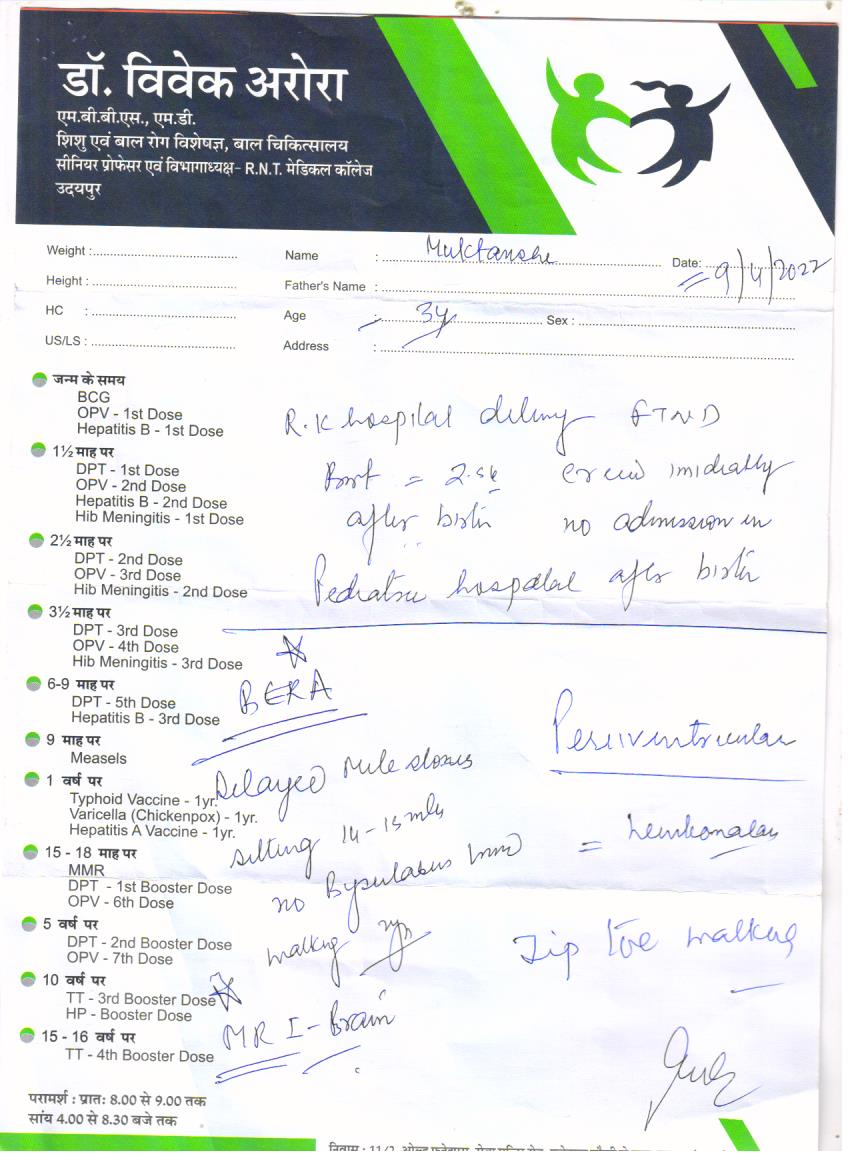 डॉ. विवेक अरोरा
एम.बी.बी.एस., एम.डी.
शिशु एवं बाल रोग विशेषज्ञ, बाल चिकित्सालय
सीनियर प्रोफेसर एवं विभागाध्यक्ष- R.N.T. मेडिकल कॉलेज
उदयपुर
Weight :
Name : Muktanshe
Date: 9/4/2022
Height :
Father's Name :
HC :
Age : 3y
Sex :
US/LS :
Address :
जन्म के समय
BCG
OPV - 1st Dose
Hepatitis B - 1st Dose
R.K hospital delivery FTND
1½ माह पर
DPT - 1st Dose
OPV - 2nd Dose
Hepatitis B - 2nd Dose
Hib Meningitis - 1st Dose
= 2.5k imidiatly
after birth no admission in
2½ माह पर
DPT - 2nd Dose
OPV - 3rd Dose
Hib Meningitis - 2nd Dose
Pediatric hospital after birth
3½ माह पर
DPT - 3rd Dose
OPV - 4th Dose
Hib Meningitis - 3rd Dose
6-9 माह पर
DPT - 5th Dose
Hepatitis B - 3rd Dose
BERA
9 माह पर
Measels
Periventricular
Delayed Mile stones
1 वर्ष पर
Typhoid Vaccine - 1yr.
Varicella (Chickenpox) - 1yr.
Hepatitis A Vaccine - 1yr.
sitting 14-15 mths
15 - 18 माह पर
MMR
DPT - 1st Booster Dose
OPV - 6th Dose
no
5 वर्ष पर
DPT - 2nd Booster Dose
OPV - 7th Dose
walking
Tip toe walking
10 वर्ष पर
TT - 3rd Booster Dose
HP - Booster Dose
15 - 16 वर्ष पर
TT - 4th Booster Dose
MRI - Brain
परामर्श : प्रातः 8.00 से 9.00 तक
सांय 4.00 से 8.30 बजे तक